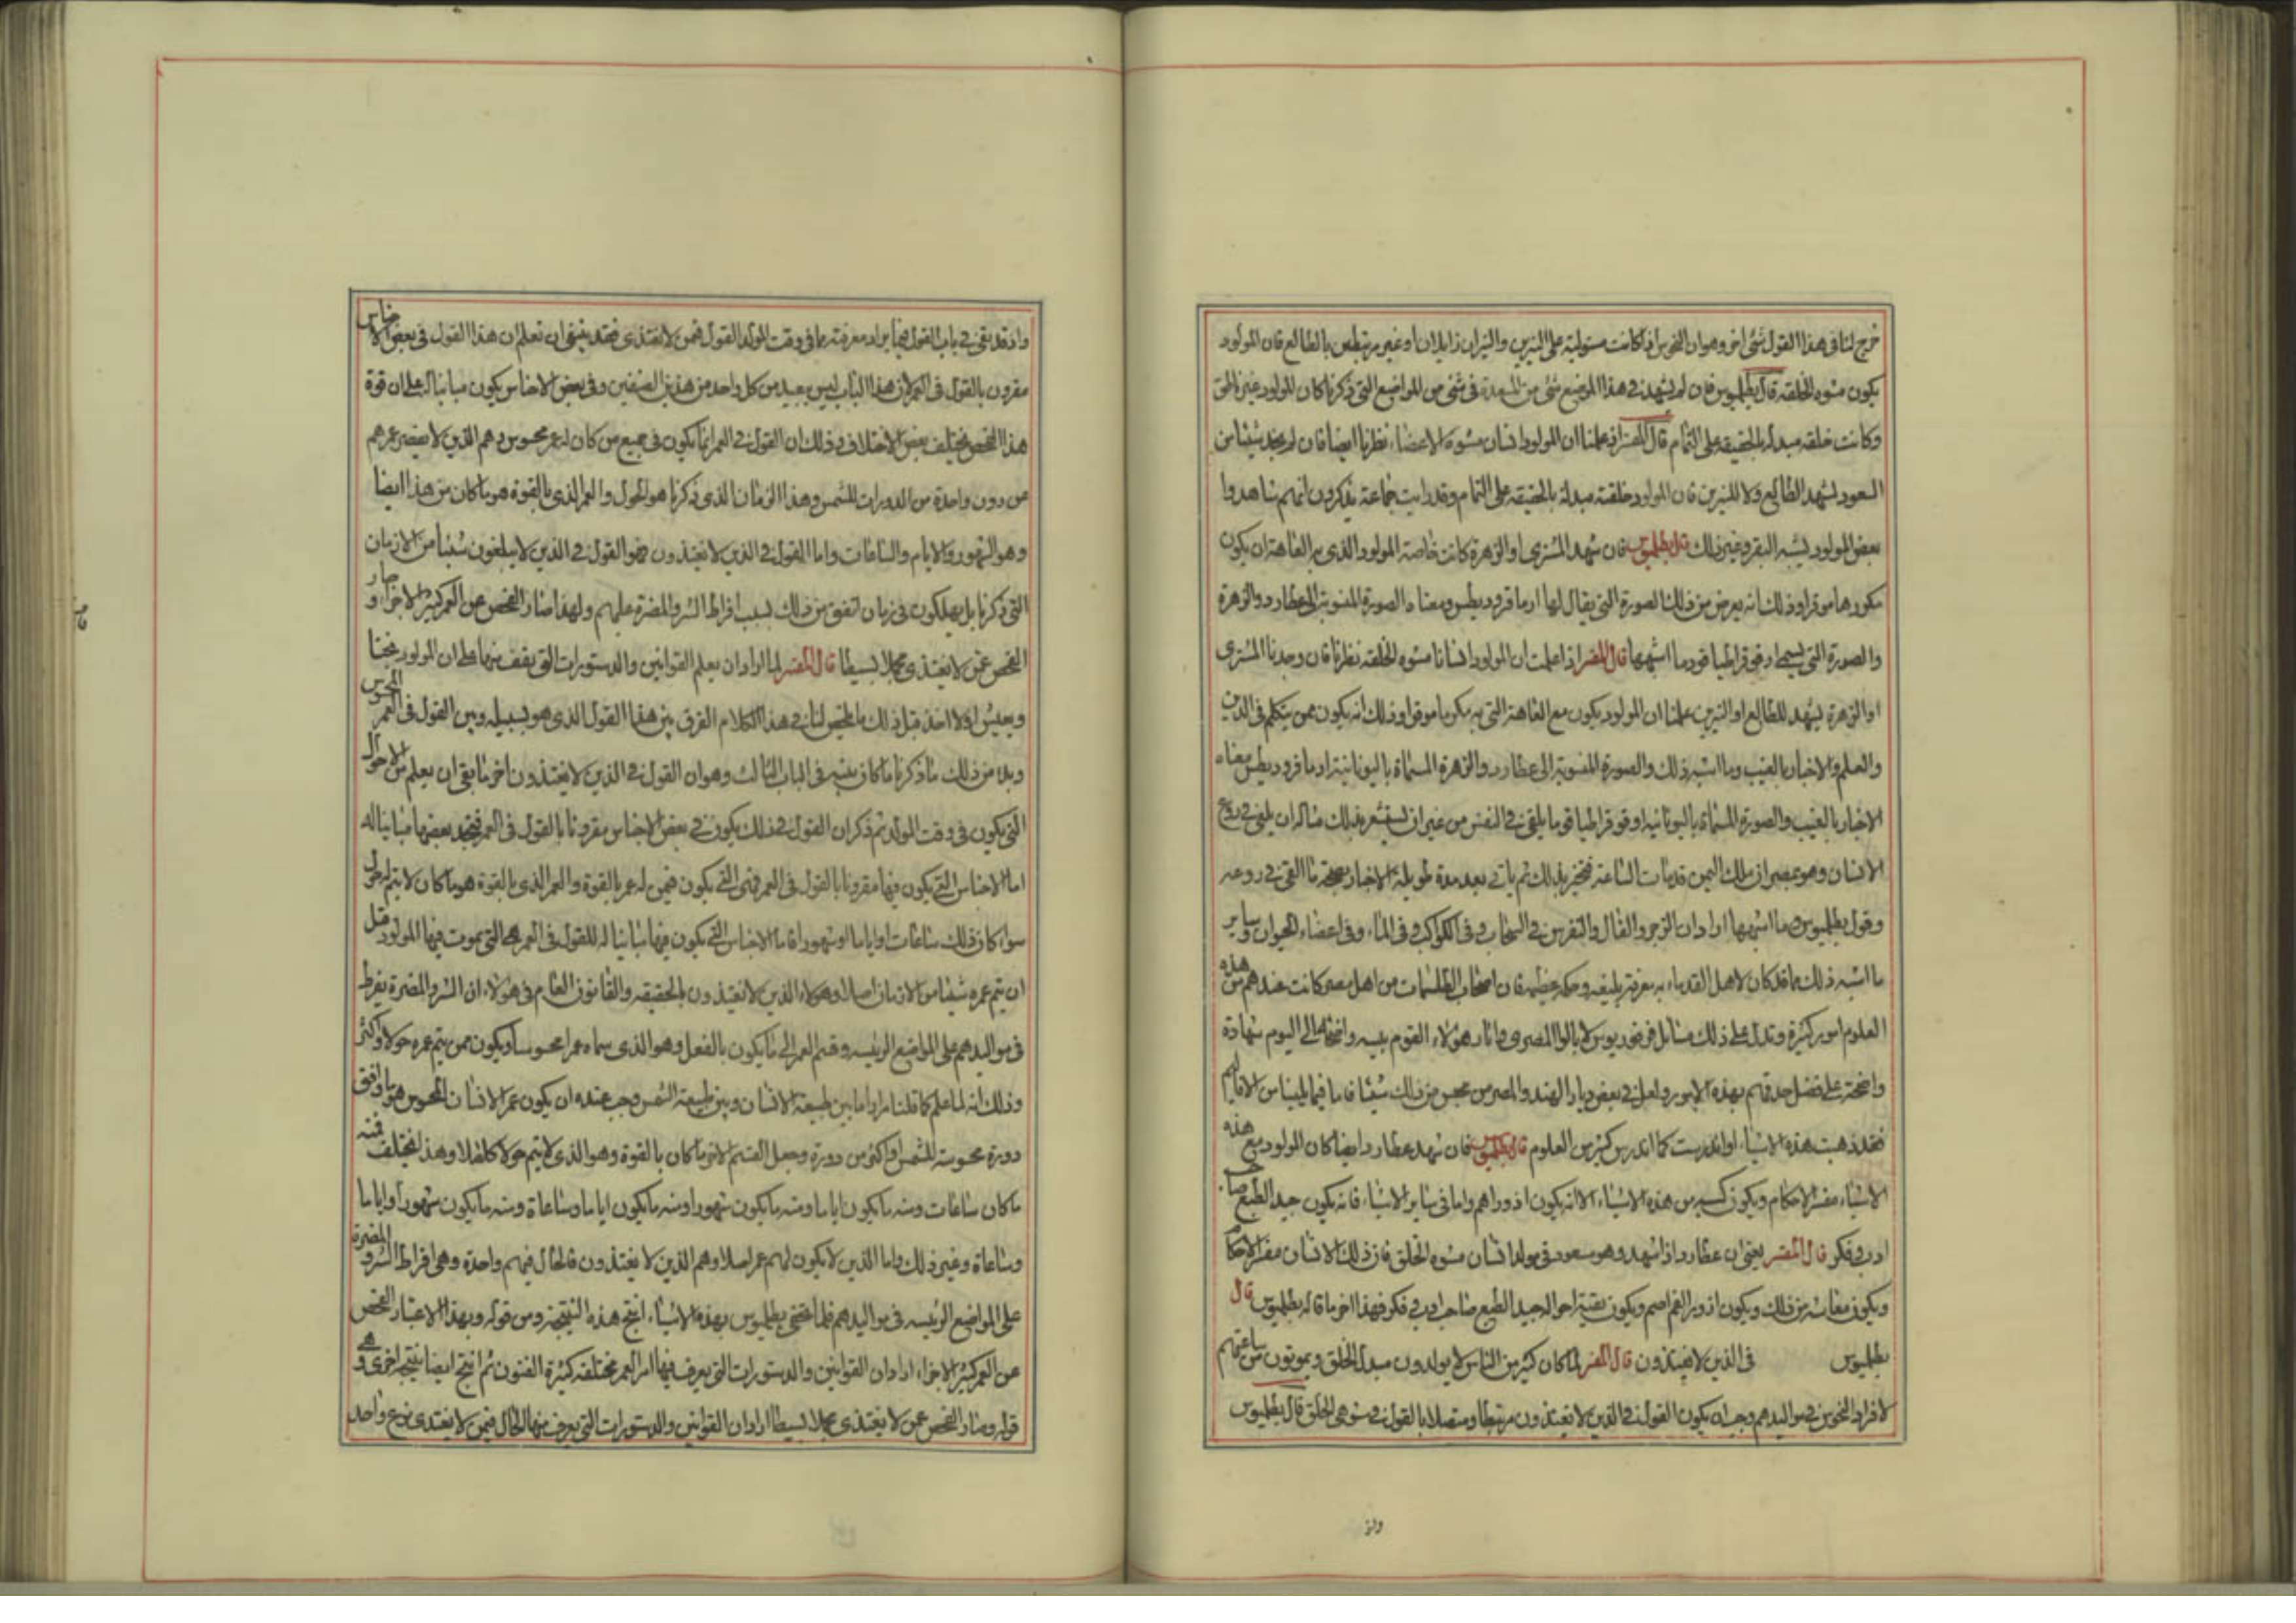 خرج لنا في هذا القول شئ اخر وهو ان النحوس اذا كانت مستولية على النيرين والنيران زايلان او غير مرتبطين بالطالع فان المولود
يكون مشوه الخلقة قال بطلميوس فان لم يشهد في هذا الموضع شئ من السعدة في شئ من المواضع التي ذكرنا كان المولود غير
وكانت خلقه مبدلة بالحقيقه على التمام قال المفسر اذ علمنا ان المولود انسان مشوه الاعضاء نظرنا ايضا فان لم نجد شيئا من
السعود يشهد الطالع ولا للنيرين فان المولود خلقته مبدلة بالحقيقه على التمام وقد رايت جماعة يذكرون انهم شاهدوا
بعض المولود يشبه البقر وغير ذلك قال بطلميوس فان شهد المشترى او الزهرة كانت خاصة المولود الذى به العاهة ان يكون
مكرما موقرا وذلك انه يعرض من ذلك الصورة التي يقال لها ارمافروديطس ومعناه الصورة المنسوبة الى عطارد والزهرة
والصورة التي تسمى ارفوقراطيا قود ما اشبهها قال المفسر اذا علمت ان المولود انسانا مشوه الخلقه نظرنا فان وجدنا المشترى
او الزهرة يشهد للطالع او النيرين علمنا ان المولود يكون مع العاهة التي به مكرما موقرا وذلك انه يكون ممن يتكلم في الدين
والعلم والاخبار بالغيب وما اشبه ذلك والصورة المنسوبة الى عطارد والزهرة المسماة باليونانية ارمافروديطس معناه
الاخبار بالغيب والصورة المسماة باليونانيه اوفوقراطيا قو ما يلقى في النفس من غير ان يستشعر بذلك مثاله ان يلقى في روع
الانسان وهو بمصر ان ملك اليمن قد مات الساعة فتخبر بذلك ثم ياتي بعد مدة طويله الاخبار بصحة ما القى في روعه
وقول بطلميوس وما اشبهها اراد ان الزجر والفال والتفرس في السحاب وفي الكواكب وفي الماء وفي اعضاء الحيوان وساير
ما اشبه ذلك مما قد كان لاهل القدماء به معرفة بليغه وحكمة عظيمه فان اصحاب الطلسمات من اهل مصر كانت عندهم من هذه
العلوم امور كثيرة وتدل على ذلك مسائل فرفوريوس لابالوا المصرى واثار هولاء القوم بينه واضحة الى اليوم شهادة
واضحة على فضل حذقهم بهذه الامور ولعل في بعض ديار الهند والصين من يحسن من ذلك شيئا فاما فيما يلينا من الاقاليم
فقد ذهبت هذه الاشياء او اندرست كما اندرس كثير من العلوم قال بطلميوس فان شهد عطارد ايضا كان المولود مع هذه
الاشياء مفسر الاحكام ويكون كسبه من هذه الاشياء الا انه يكون اذورا اهم واما في ساير الاشياء فانه يكون جيد الطبع صاحب
ادب وفكر قال المفسر يعني ان عطارد اذا شهد وهو مسعود في مولد انسان مشوه الخلق فان ذلك الانسان مفسر الاحكام
ويكون معاشه من ذلك ويكون ازور الفم اصم ويكون بقية احواله جيد الطبع صاحب ادب وفكر فهذا اخر ما قاله بطلميوس قال
بطلميوس في الذين لا يغتذون قال المفسر لما كان كثير من الناس لا يولدون مبدلى الخلق ويموتون من ساعتهم
لافراد النحوس في مواليدهم وجب ان يكون القول في الذين لا يغتذون مرتبطا ومتصلا بالقول في مشوهى الخلق قال بطلميوس
واذ قد بقى في باب القول فيما يراد معرفته مما في وقت المولد القول فيمن لا يغتذى فقد ينبغي ان تعلم ان هذا القول في بعض الاجناس
مقرون بالقول في العمر لان هذا الباب ليس ببعيد من كل واحد من هذين الصنفين وفي بعض الاجناس يكون مباينا له على ان قوة
هذا الفحص تختلف بعض الاختلاف وذلك ان القول في العمر انما يكون في جميع من كان له عمر محسوس وهم الذين لا ينقضى عمرهم
من دون واحدة من الدورات للشمس وهذا الزمان الذى ذكرنا هو الحول والعمر الذى بالقوة هو ما كان من هذا ايضا
وهو الشهور والايام والساعات واما القول في الذين لا يغتذون فهو القول في الذين لا يبلغون شيئا من الازمان
التي ذكرنا بل يهلكون في زمان تفق من ذلك بسبب افراط الشر والمضرة عليهم ولهذا صار الفحص عن العمر كثير الاجزاء وصار
الفحص عمن لا يغتذى مجملا بسيطا قال المفسر لما اراد ان يعلم القوانين والدستورات التي يقف منها على ان المولود
ويعيش اولا اخذ قبل ذلك ما يلخص لنا في هذا الكلام الفرق بين هذا القول الذى هو بسبيله وبين القول في العمر المحسوس
وبدء من ذلك ما ذكرنا ما كان بينه في الباب الثالث وهو ان القول في الذين لا يغتذون اخر ما بقى ان يعلم من الاحوال
التي يكون في وقت المولد ثم ذكر ان القول في ذلك يكون في بعض الاجناس مقرونا بالقول في العمر فتجد بعضها مباينا له
اما الاجناس التي يكون فيها مقرونا بالقول في العمر فهى التي يكون فيمن له عمر بالقوة والعمر الذى بالقوة هو ما كان لا يتم له حول
سواء كان ذلك ساعات او اياما او شهورا فاما الاجناس التي يكون فيها مباينا له للقول في العمر فهى التي يموت فيها المولود قبل
ان يتم عمره شيئا من الازمان اصلا وهولاء الذين لا يغتذون بالحقيقه والقانون العام في هولاء ان الشر والمضرة يفرط
في مواليدهم على المواضع الرئيسه وقسم العمر الى ما يكون بالفعل وهو الذى سماه عمرا محسوسا ويكون ممن يتم عمره حولا واكثر
وذلك انه لما علم كما قلنا مرارا ما بين طبيعة الانسان وبين طبيعة الشمس وجب عنده ان يكون عمر الانسان المحسوس هو ما وافق
دورة محسوسة للشمس او اكثر من دورة وجعل القسم الاخر ما كان بالقوة وهو الذى لا يتم حولا كاملا وهذا يختلف فمنه
ما كان ساعات ومنه ما يكون اياما ومنه ما يكون شهورا ومنه ما يكون اياما وساعاة ومنه ما يكون شهورا واياما
وساعاة وغير ذلك واما الذين لا يكون لهم عمر اصلا وهم الذين لا يغتذون فالحال فيهم واحدة وهى افراط الشر والمضرة
على المواضع الرئيسه في مواليدهم فلما بطلميوس بهذه الاشياء انتج هذه النتيجة ومن قوله وبهذا الاعتبار الفحص
عن العمر كثير الاجزاء اراد ان القوانين والدستورات التي يعرف فيها امر العمر مختلفه كثيرة الفنون ثم انتج ايضا نتيجة اخرى وهى
قوله وصار الفحص عمن لا يغتذى مجملا بسيطا اراد ان القوانين والدستورات التي يعرف منها الحال فيمن لا يغتذى نوع واحد
واذ